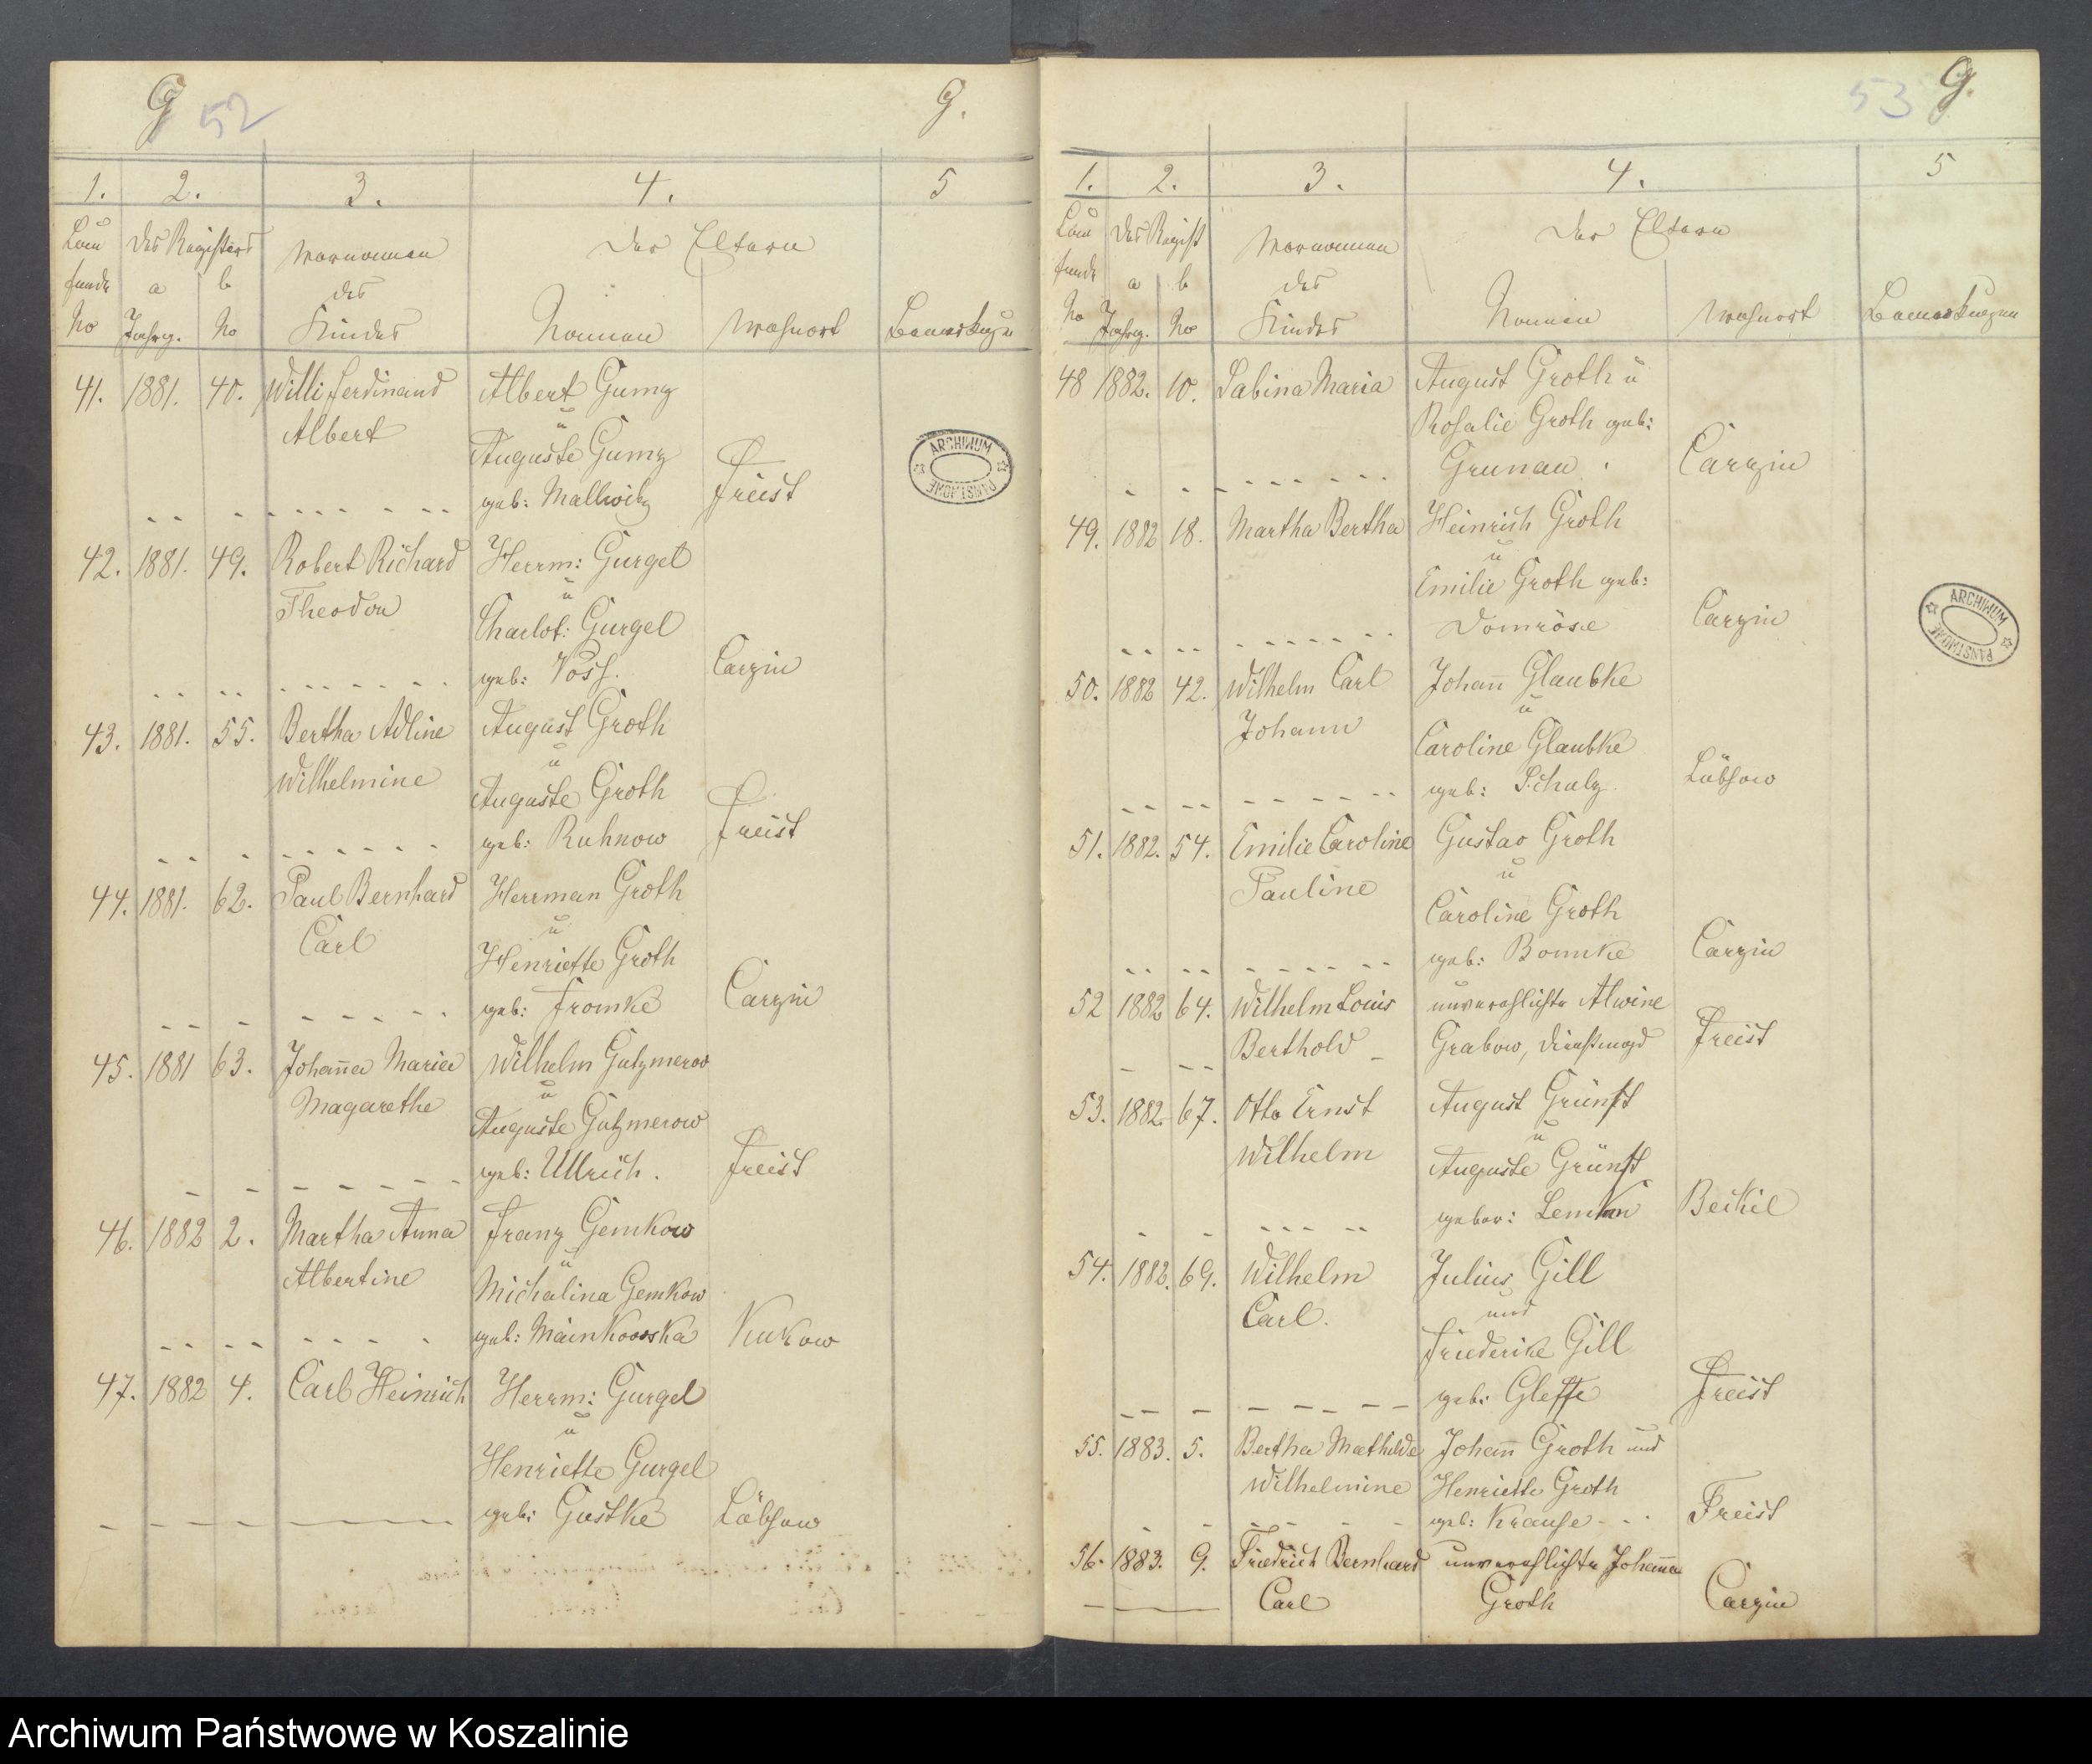 G 52 G.
1. 2. 3. 4. 5
Lau des Registers Vornamen Der Eltern
fende a b des
No Jahrg. No Kindes Namen Wohnort Bemerkungen
41. 1881. 40. Willi Ferdinand Albert Gumz
Albert u
Auguste Gumz
geb: Mallwitz Freist
42. 1881. 49. Robert Richard Herrm: Gurgel
Theodor u
Charlot: Gurgel
geb: Voss. Carzin
43. 1881. 55. Bertha Adline August Groth
Wilhelmine u
Auguste Groth
geb: Ruhnow Freist
44. 1881. 62. Paul Bernhard Herrman Groth
Carl u
Henriette Groth
geb: Fromke Carzin
45. 1881 63. Johanna Maria Wilhelm Gutzmerow
Magarethe u
Auguste Gutzmerow
geb: Ullrich. Freist
46. 1882 2. Martha Anna Franz Gemkow
Albertine u
Michalina Gemkow
geb: Mainkowska Kukow
47. 1882 4. Carl Heinrich Herrm: Gurgel
u
Henriette Gurgel
geb: Gustke Lübsow
ARCHIWUM
PAŃSTWOWE
53 G.
1. 2. 3. 4. 5
Lau des Regist Vornamen Der Eltern
fende a b des
No Jahrg. No Kindes Namen Wohnort Bemerkungen
48 1882. 10. Sabina Maria August Groth u
Rosalie Groth geb:
Grunau. Carzin
49. 1882 18. Martha Bertha Heinrich Groth
u
Emilie Groth geb:
Domröse Carzin
50. 1882 42. Wilhelm Carl Johann Glaubke
Johann u
Caroline Glaubke
geb: Schulz Lübsow
51. 1882. 54. Emilie Caroline Gustav Groth
Pauline u
Caroline Groth
geb: Bomke Carzin
52 1882 64. Wilhelm Louis unverehlichte Alwine
Berthold Grabow, Dienstmagd Freist
53. 1882. 67. Otto Ernst August Grünst
Wilhelm u
Auguste Grünst
gebor: Lemkn Beckel
54. 1882. 69. Wilhelm Julius Gill
Carl. und
Friederike Gill
geb: Gleffe Freist
55. 1883. 5. Bertha Mathilde Johann Groth und
Wilhelmine Henriette Groth
geb: Krause Freist
56. 1883. 9. Friedrich Bernhard unverehlichte Johanna
Carl Groth Carzin
ARCHIWUM
PAŃSTWOWE
Archiwum Państwowe w Koszalinie